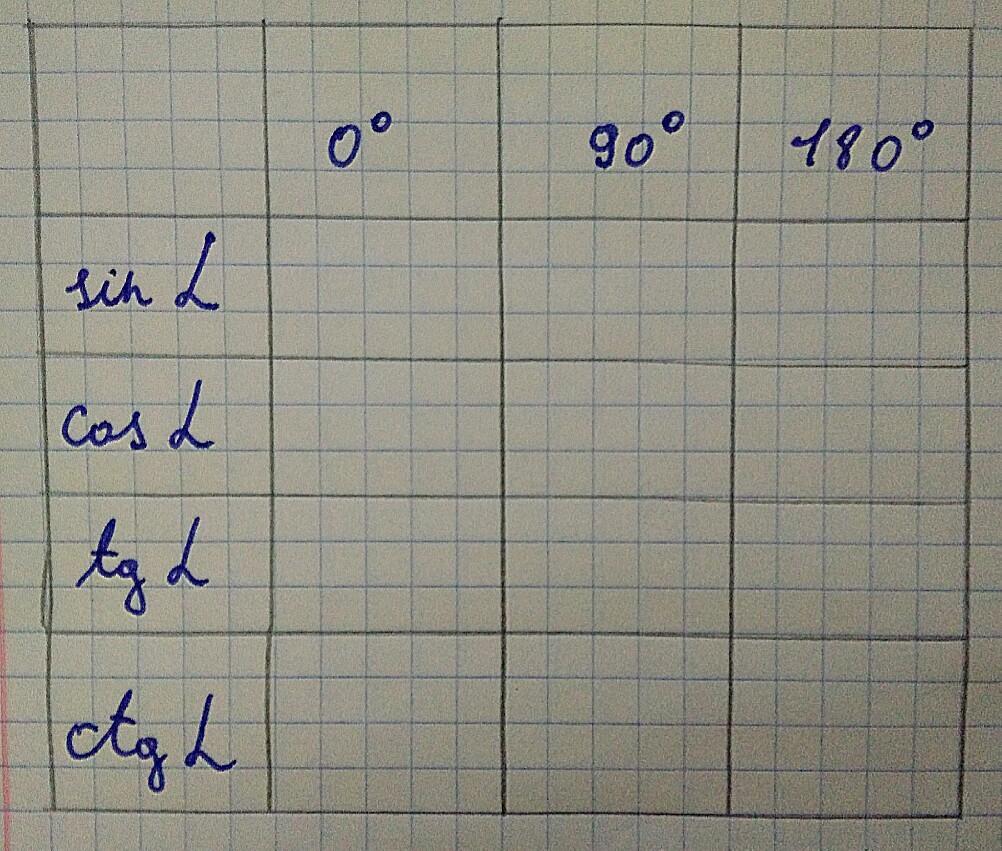 0° 90° 180°
sin α
cos α
tg α
ctg α